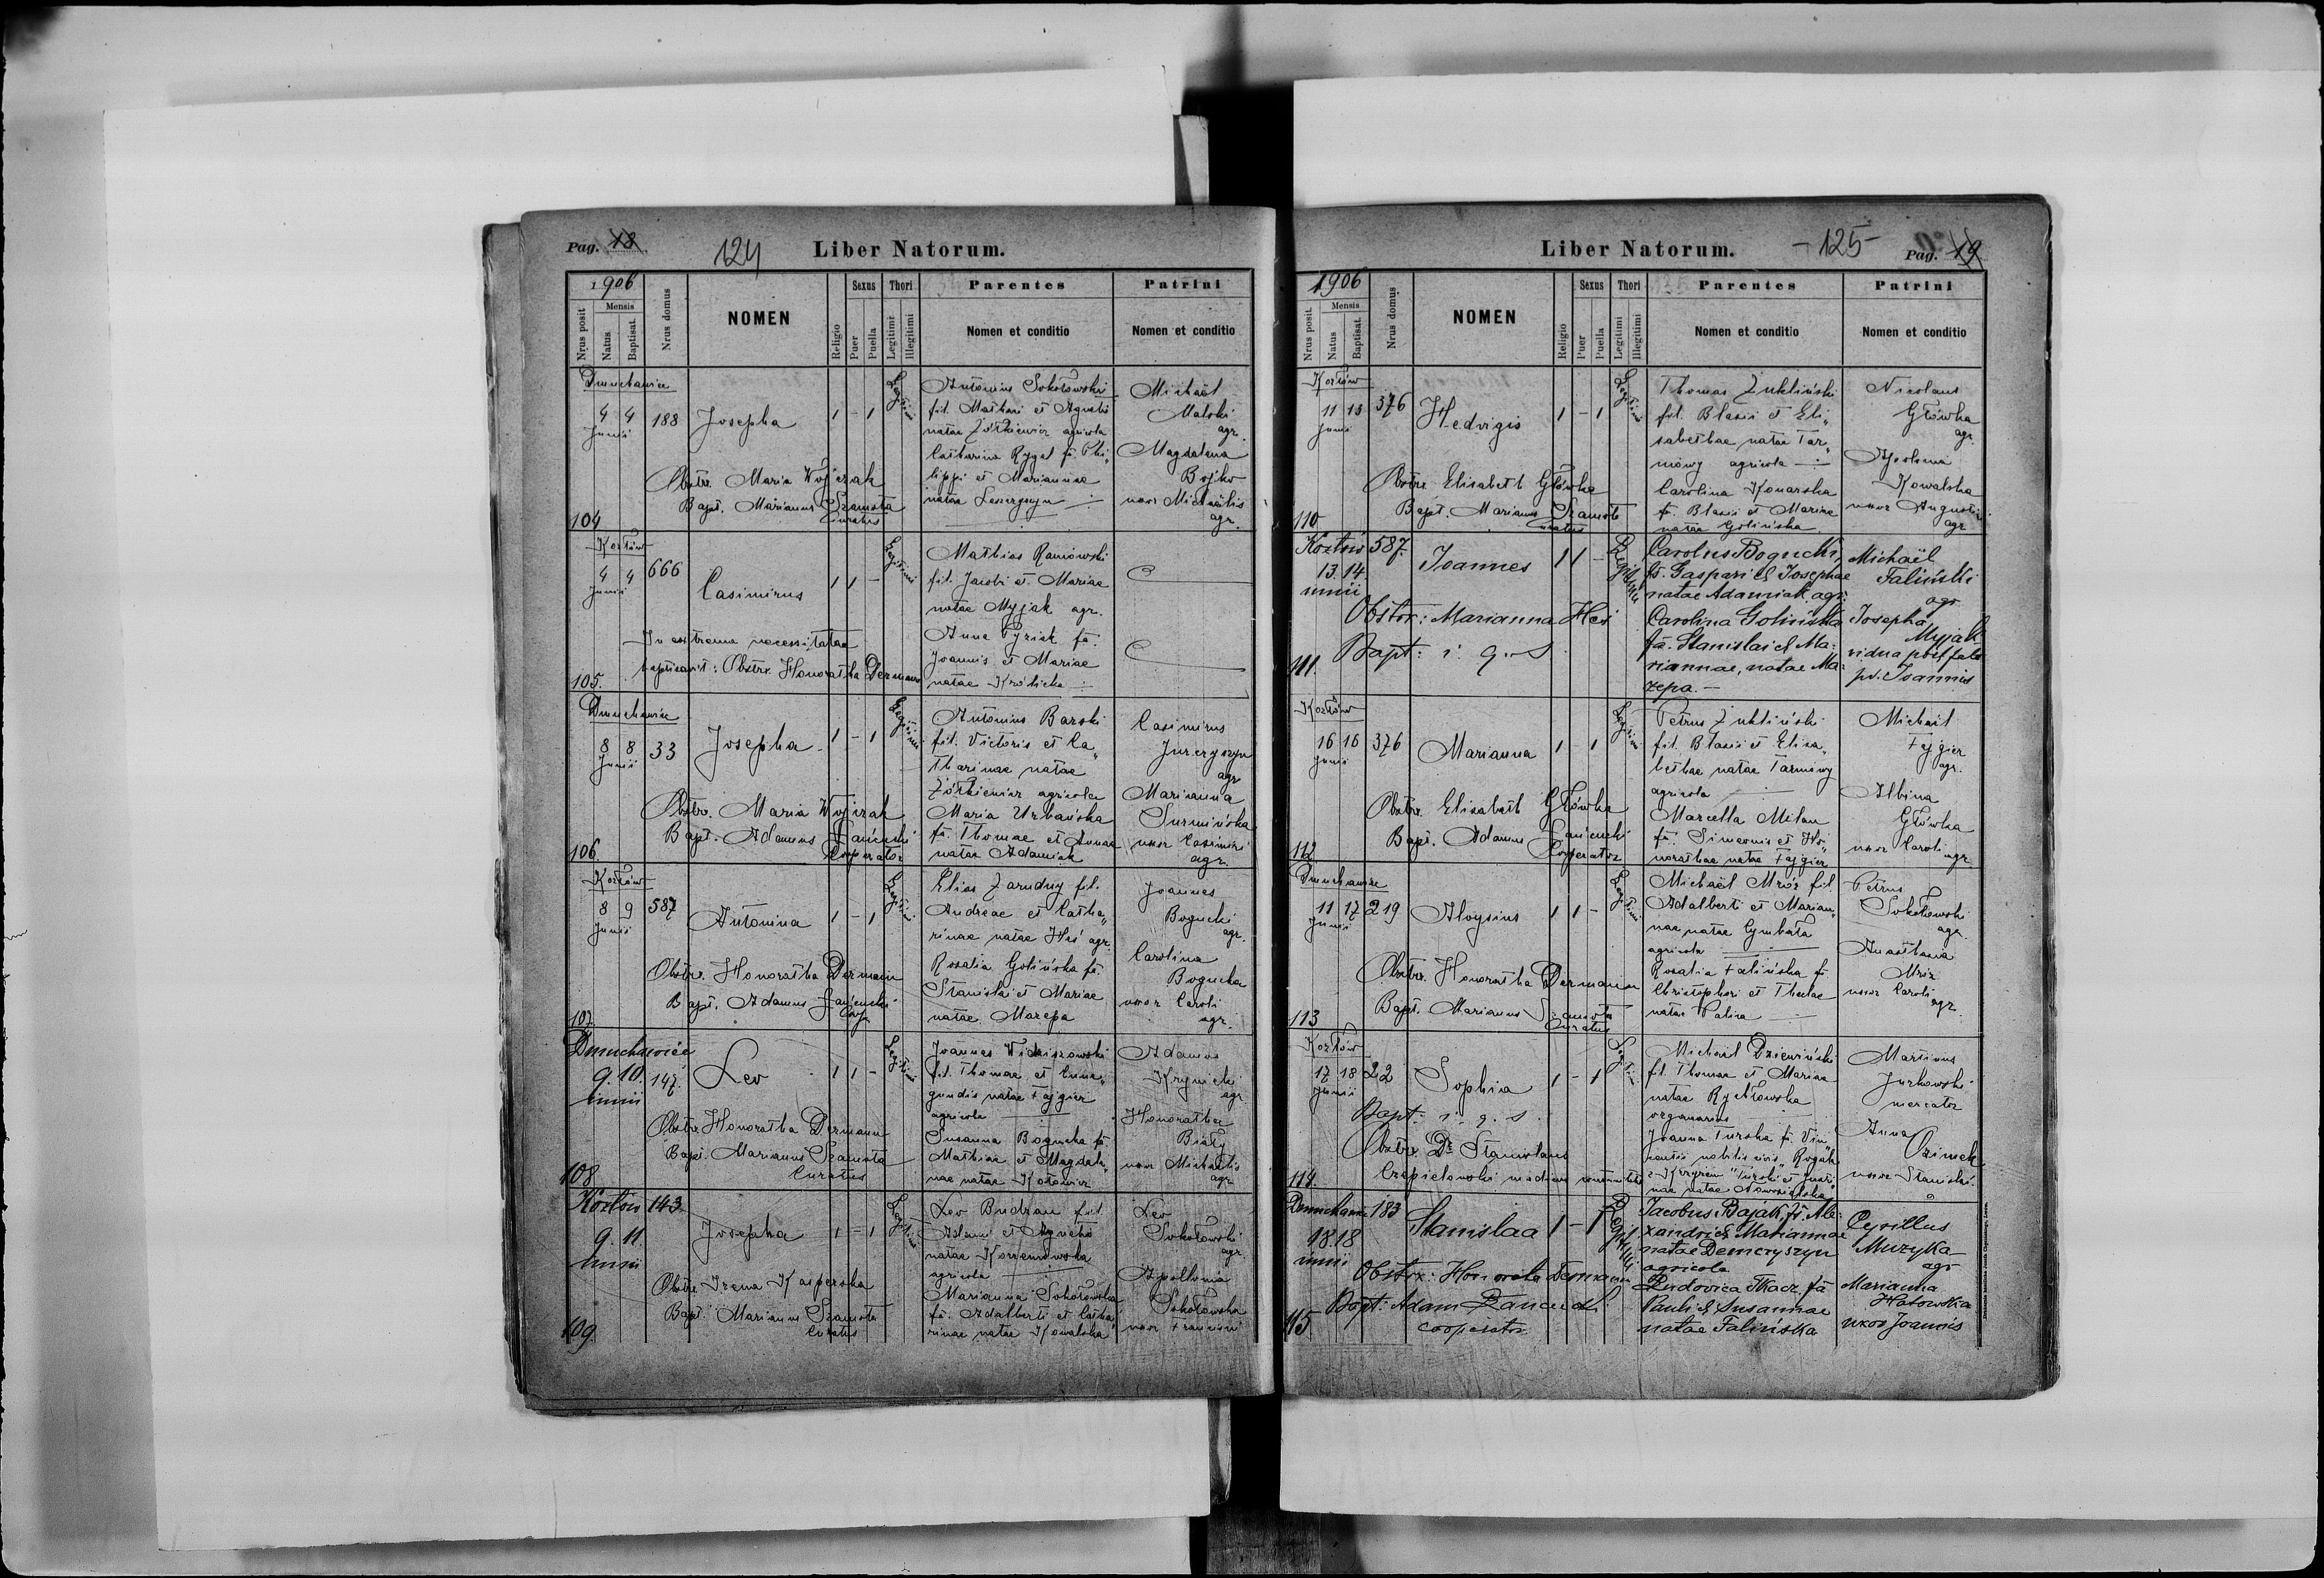 Pag. 18
124
Liber Natorum.
1906
Nrus posit
Mensis
Natus
Baptisat.
Nrus domus
NOMEN
Religio
Sexus
Puer
Puella
Thori
Legitimi
Illegitimi
Parentes
Nomen et conditio
Patrini
Nomen et conditio
Dmuchawiec
4 4 188 Josepha 1 - 1 Legitimi
Junii
Obstr. Maria Wojczak
Bapt. Marianus Szamota
Curatus
104
Antonius Sokołowski
fil. Mathaei et Agnetis
natae Żółkiewicz agricola
Catharina Rygel fa. Phi„
lippi et Mariannae
natae
Michaël
Malski
agr.
Magdalena
Bojko
uxor Michaëlis
agr.
Kozłów
4 4 666 Casimirus 1 1 - Legitimi
Junii
In extrema necessitatae
baptisavit: Obstr. Honoratha Dermann
105.
Mathias Ramowski
fil. Jacobi et Mariae
natae Myjak agr.
Anna Pyziak fa.
Joannis et Mariae
natae Królicka
Dmuchawiec
8 8 33 Josepha 1 - 1 Legitimi
Junii
Obstr. Maria Wojczak
Bapt. Adamus Łańcucki
Cooperator
106
Antonius Barski
fil. Victoris et Ca„
tharinae natae
Żółkiewicz agricola
Maria Urbańska
fa. Thomae et Annae
natae Adamiak
Casimirus
Jurczyszyn
agr.
Marianna
Surmińska
uxor Casimiri
agr.
Kozłów
8 9 587 Antonina 1 - 1 Legitimi
Junii
Obstr. Honoratha Dermann
Bapt. Adamus Łańcucki
Coop
107
Elias Zarudny fil.
Andreae et Catha„
rinae natae Huś agr.
Rosalia Golińska fa.
Stanislai et Mariae
natae Mazepa
Joannes
Bogucki
agr.
Carolina
Bogucka
uxor Caroli
agr.
Dmuchawiec
9. 10. 147. Leo 1 1 - Legitimi
iunii
Obstr. Honoratha Dermann
Bapt. Marianus Szamota
Curatus
108
Joannes
fil. Thomae et Cune„
gundis natae Fajgier
agricola
Susanna Bogucka fa
Mathiae et Magdale„
nae natae Kołowicz
Adamus
Krynicki
agr
Honoratha
Biały
uxor Michaëlis
agr
Kozłów 143
9. 11. Josepha 1 - 1 Legitimi
iunii
Obstr. Irena Kasperska
Bapt. Marianus Szamota
Curatus
109
Leo Budzan fil.
Adami et Agnetis
natae Korzeniowska
agricola
Marianna Sokołowska
fa. Adalberti et Catha„
rinae natae Kowalska
Leo
Sokołowski
agr.
Apollonia
Sokołowska
uxor Francisci
Liber Natorum.
-125-
Pag. 19
1906
Nrus posit.
Mensis
Natus
Baptisat.
Nrus domus
NOMEN
Religio
Sexus
Puer
Puella
Thori
Legitimi
Illegitimi
Parentes
Nomen et conditio
Patrini
Nomen et conditio
Kozłów
11 13 376 Hedvigis 1 - 1 Legitimi
Junii
Obstr. Elisabeth Główka
Bapt. Marianus Szamota
Curatus
110
Thomas Zukliński
fil. Blasii et Eli„
sabethae natae Tar„
mowy agricola
Carolina Konarska
fa. Blasii et Mariae
natae Golińska
Nicolaus
Główka
agr.
Apolonia
Kowalska
uxor Augustini
agr
Kozłów 587.
13. 14. Joannes 1 1 - Legitimi
iunii
Obstr: Marianna Hes
Bapt: i. q. S
111.
Carolus Bogucki,
fs. Gaspari & Josephae
natae Adamiak, agr.
Carolina Golińska
fa. Stanislai & Ma-
riannae, natae Ma-
zepa.
Michaël
Faliński
agr
Josepha
Myjak
vidua post fate
pd. Joannis
Kozłów
16 16 376 Marianna 1 - 1 Legitimi
Junii
Obstr. Elisabeth Główka
Bapt. Adamus Łańcucki
Cooperator
112
Petrus Zukliński
fil. Blasii et Elisa„
bethae natae Tarmowy
agricola
Marcella Melan
fa. Simeonis et Ho„
norathae natae Fajgier
Michaël
Fajgier
agr.
Albina
Główka
uxor Caroli
agr
Dmuchawiec
11 17 219 Aloysius 1 1 - Legitimi
Junii
Obstr. Honoratha Dermann
Bapt. Marianus Szamota
Curatus
113
Michaël Mróz fil
Adalberti et Marian„
nae natae Cymbała
agricola
Rosalia Falińska fa.
Christophori et Theclae
natae Palica
Petrus
Sokołowski
agr.
Anasthasia
Mróz
uxor Caroli
agr.
Kozłów
17 18 22 Sophia 1 - 1 Legitimi
Junii
Bapt. i. q. s.
Obstr. Dr Stanislaus
114.
Michaël Dziewiński
fil. Thomae et Mariae
natae Rychłowska
organarius
Joanna Turska fa. Vin„
centii nobilis viri „Rogala
Martinus
Jurkowski
mercator
Anna
Ozimek
uxor Stanislai
Dmuchawiec 183
18. 18 Stanislaa 1 - 1 Legitimi
iunii
Obstr: Honorata Dermann
Bapt: Adam Łańcucki
cooperator
115
Jacobus Bajak, fs. Ale-
xandri & Mariannae
natae Demczyszyn
agricola
Ludovica Tkacz, fa
Pauli & Susannae
natae Falińska
Cyrillus
Muzyka
agr
Marianna
Hatowska
uxor Joannis